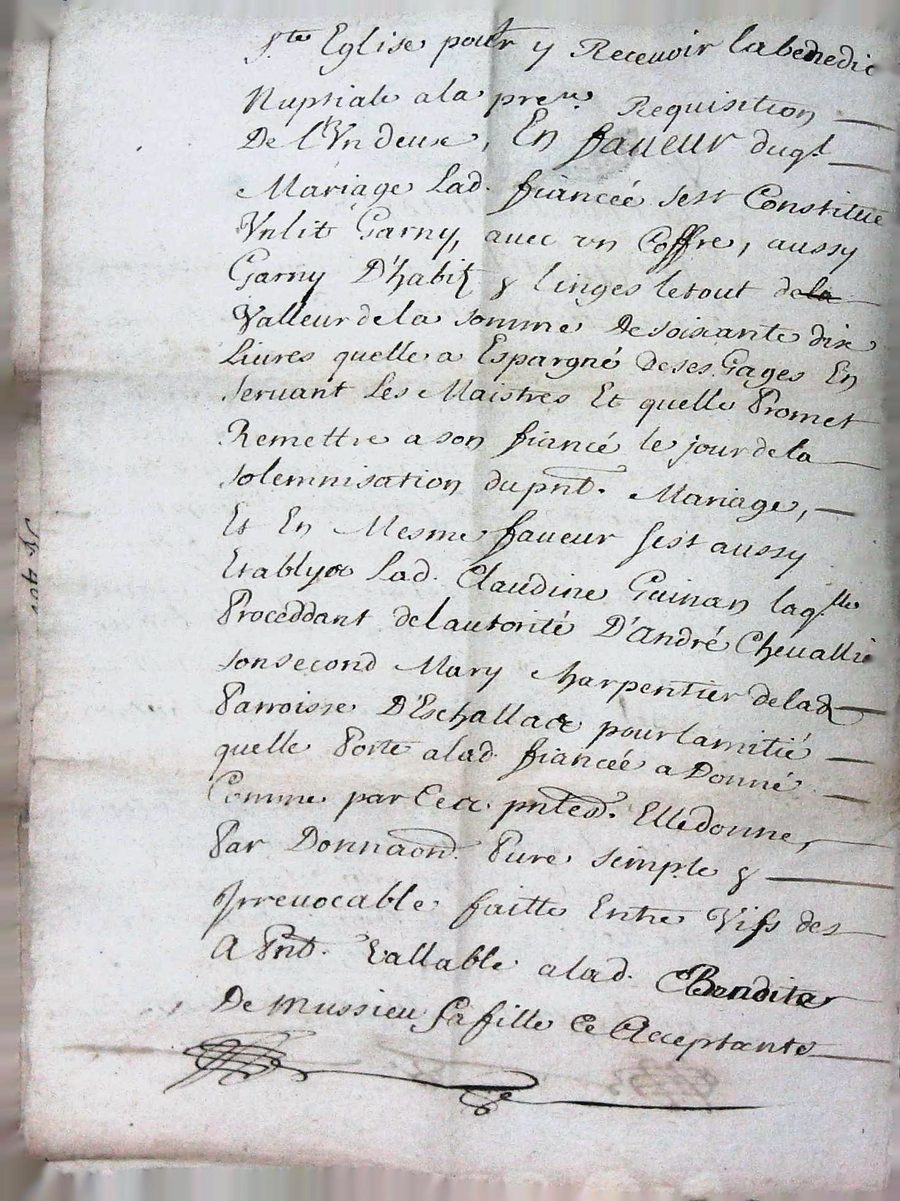 Ste Eglise pour y Recevoir la benedic
Nuptiale a la prere. Requisition
De l'Vn deux, En faueur duqt
Mariage Lad. fiancée sest Constitué
Vn lit Garny, auec vn Coffre, aussy
Garny D'habitz & linges le tout de la
Valleur de la somme de soixante dix
Liures quelle a Espargné de ses Gages En
seruant Les Maistres Et quelle Promet
Remettre a son fiancé le jour de la
solemnisation du pnt. Mariage,
Et En Mesme faueur sest aussy
Etablye Lad. Claudine Guinan laqlle
Proceddant de lautorité D'André Cheuallie
son second Mary charpentier de lad
Parroisse D'Eschallace pour lamitié
quelle Porte a lad. fiancée a Donné
Comme par Cea. pntes. Elle donne,
Par Donnaon. Pure simple &
Irreuocable faitte Entre Vifs des
A Pnt. Vallable a lad. Bendite
De mussieu sa fille Ce Acceptante